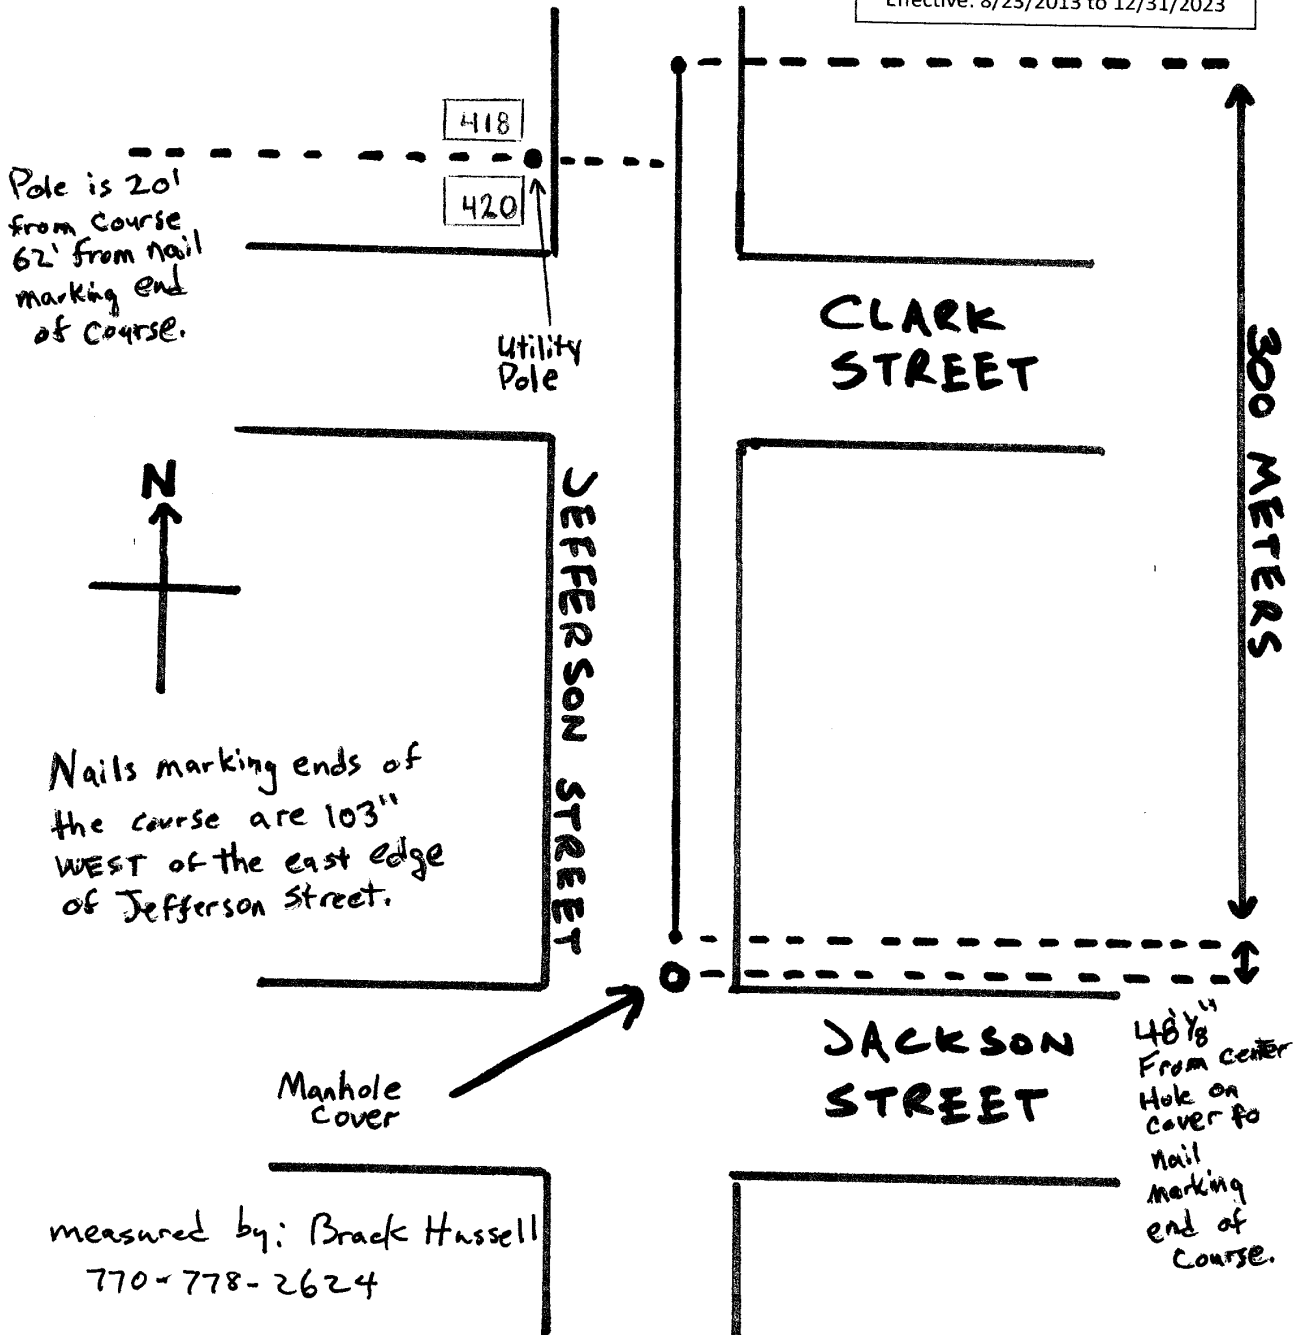 Effective: 8/23/2013 to 12/31/2023
418
420
Pole is 20'
from course
62' from nail
marking end
of course.
Utility
Pole
CLARK
STREET
300 METERS
N
JEFFERSON STREET
Nails marking ends of
the course are 103"
WEST of the east edge
of Jefferson Street.
Manhole
cover
JACKSON
STREET
48 1/8"
From center
Hole on
cover to
nail
marking
end of
course.
measured by: Brack Hassell
770-778-2624